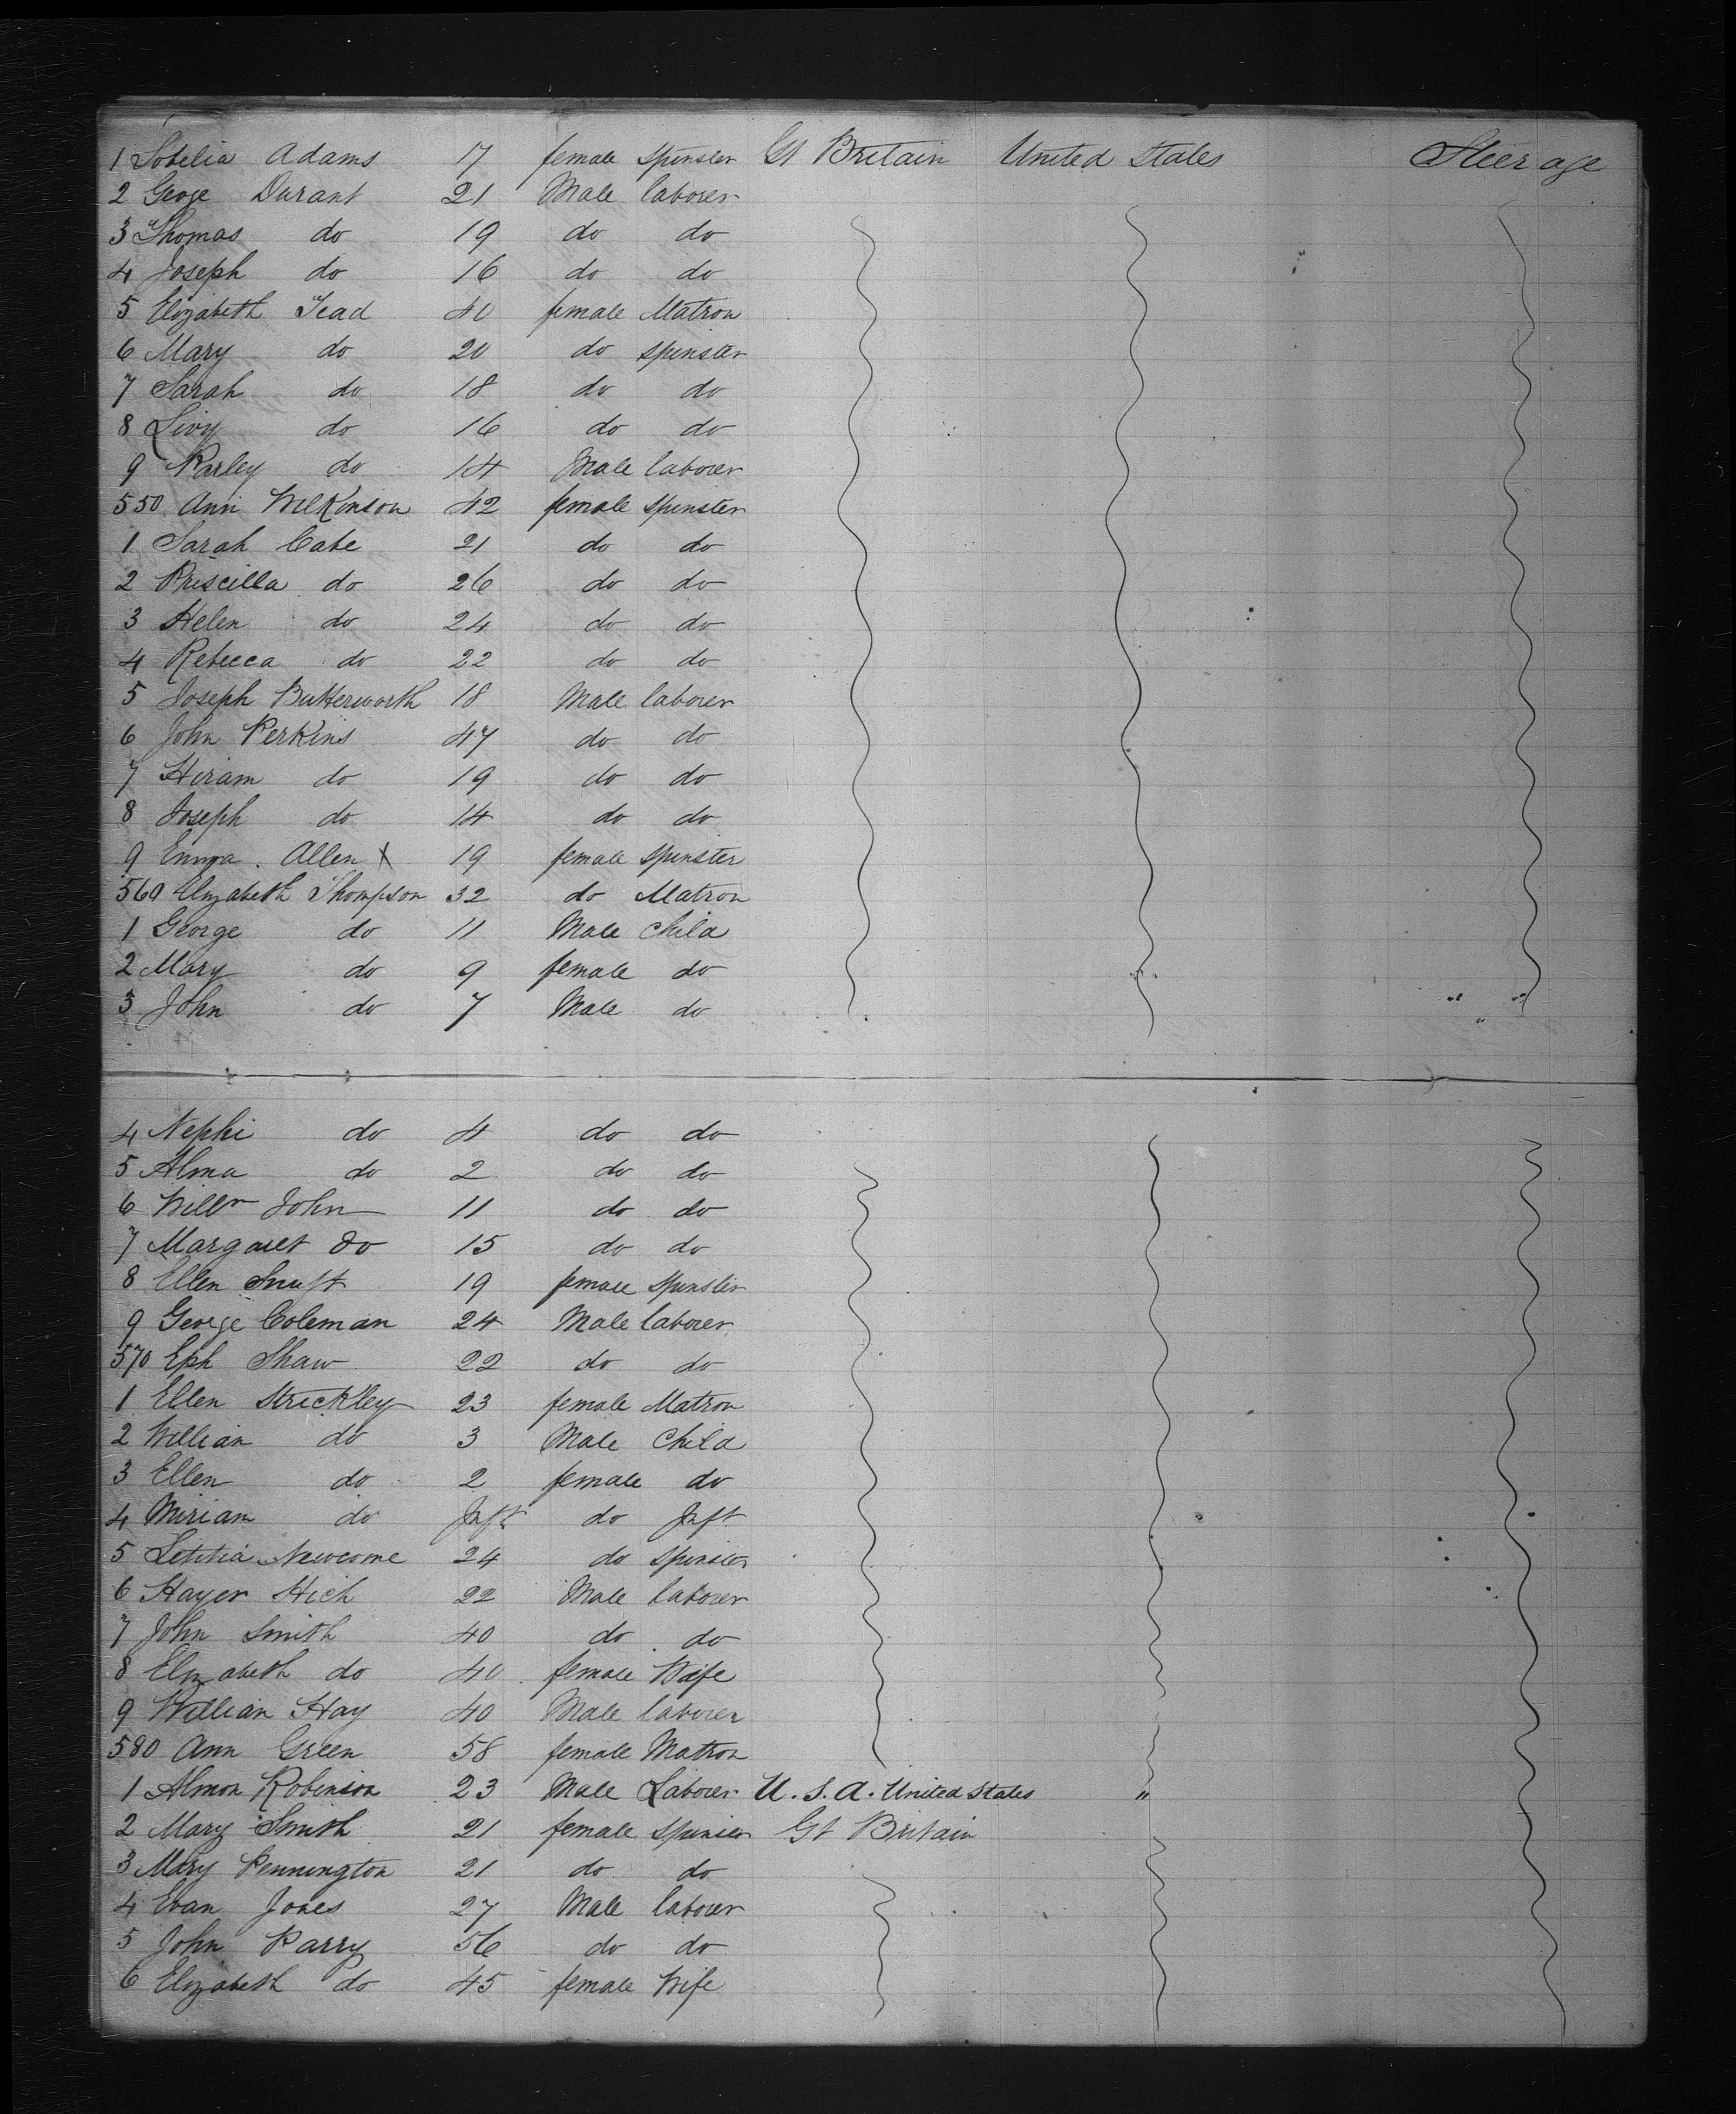 1 Sobelia Adams 17 female spinster Gt Britain United States Steerage
2 Geoge Durant 21 Male laborer
3 Thomas do 19 do do
4 Joseph do 16 do do
5 Elizabeth Tead 40 female Matron
6 Mary do 20 do spinster
7 Sarah do 18 do do
8 Livy do 16 do do
9 Parley do 14 Male laborer
550 Ann Wilkinson 42 female spinster
1 Sarah Cabe 21 do do
2 Priscilla do 26 do do
3 Helen do 24 do do
4 Rebecca do 22 do do
5 Joseph Butterworth 18 Male laborer
6 John Perkins 47 do do
7 Hiram do 19 do do
8 Joseph do 14 do do
9 Emma Allen X 19 female spinster
560 Elizabeth Thompson 32 do Matron
1 George do 11 Male Child
2 Mary do 9 female do
3 John do 7 Male do
4 Nephi do 4 do do
5 Alma do 2 do do
6 Willm John 11 do do
7 Margaret do 15 do do
8 Ellen 19 female spinster
9 George Coleman 24 Male laborer
570 Eph Shaw 22 do do
1 Ellen Strickley 23 female Matron
2 William do 3 Male Child
3 Ellen do 2 female do
4 Miriam do Inft do Inft
5 Letitia Newcome 24 do spinster
6 Hayer Hich 22 Male laborer
7 John Smith 40 do do
8 Elizabeth do 40 female Wife
9 William Hay 40 Male laborer
580 Ann Green 58 female Matron
1 Almon Robinson 23 Male Laborer U.S.A. United States "
2 Mary Smith 21 female spinster Gt Britain
3 Mary Pennington 21 do do
4 Evan Jones 27 Male laborer
5 John Parry 56 do do
6 Elizabeth do 45 female Wife